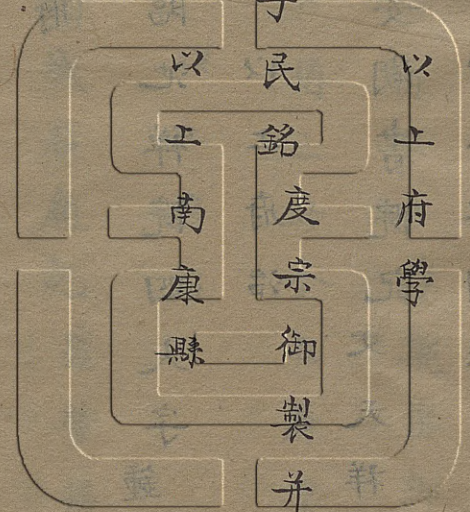 以上府學
民銘度宗御製并
以上南康縣